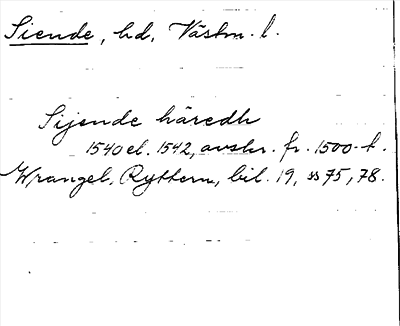 Siende, hd, Västm. l.
Sijende häredh
1540 el. 1542, avskr. fr. 1500-t.
Wrangel, Ryttern, bil. 19, ss 75, 78.